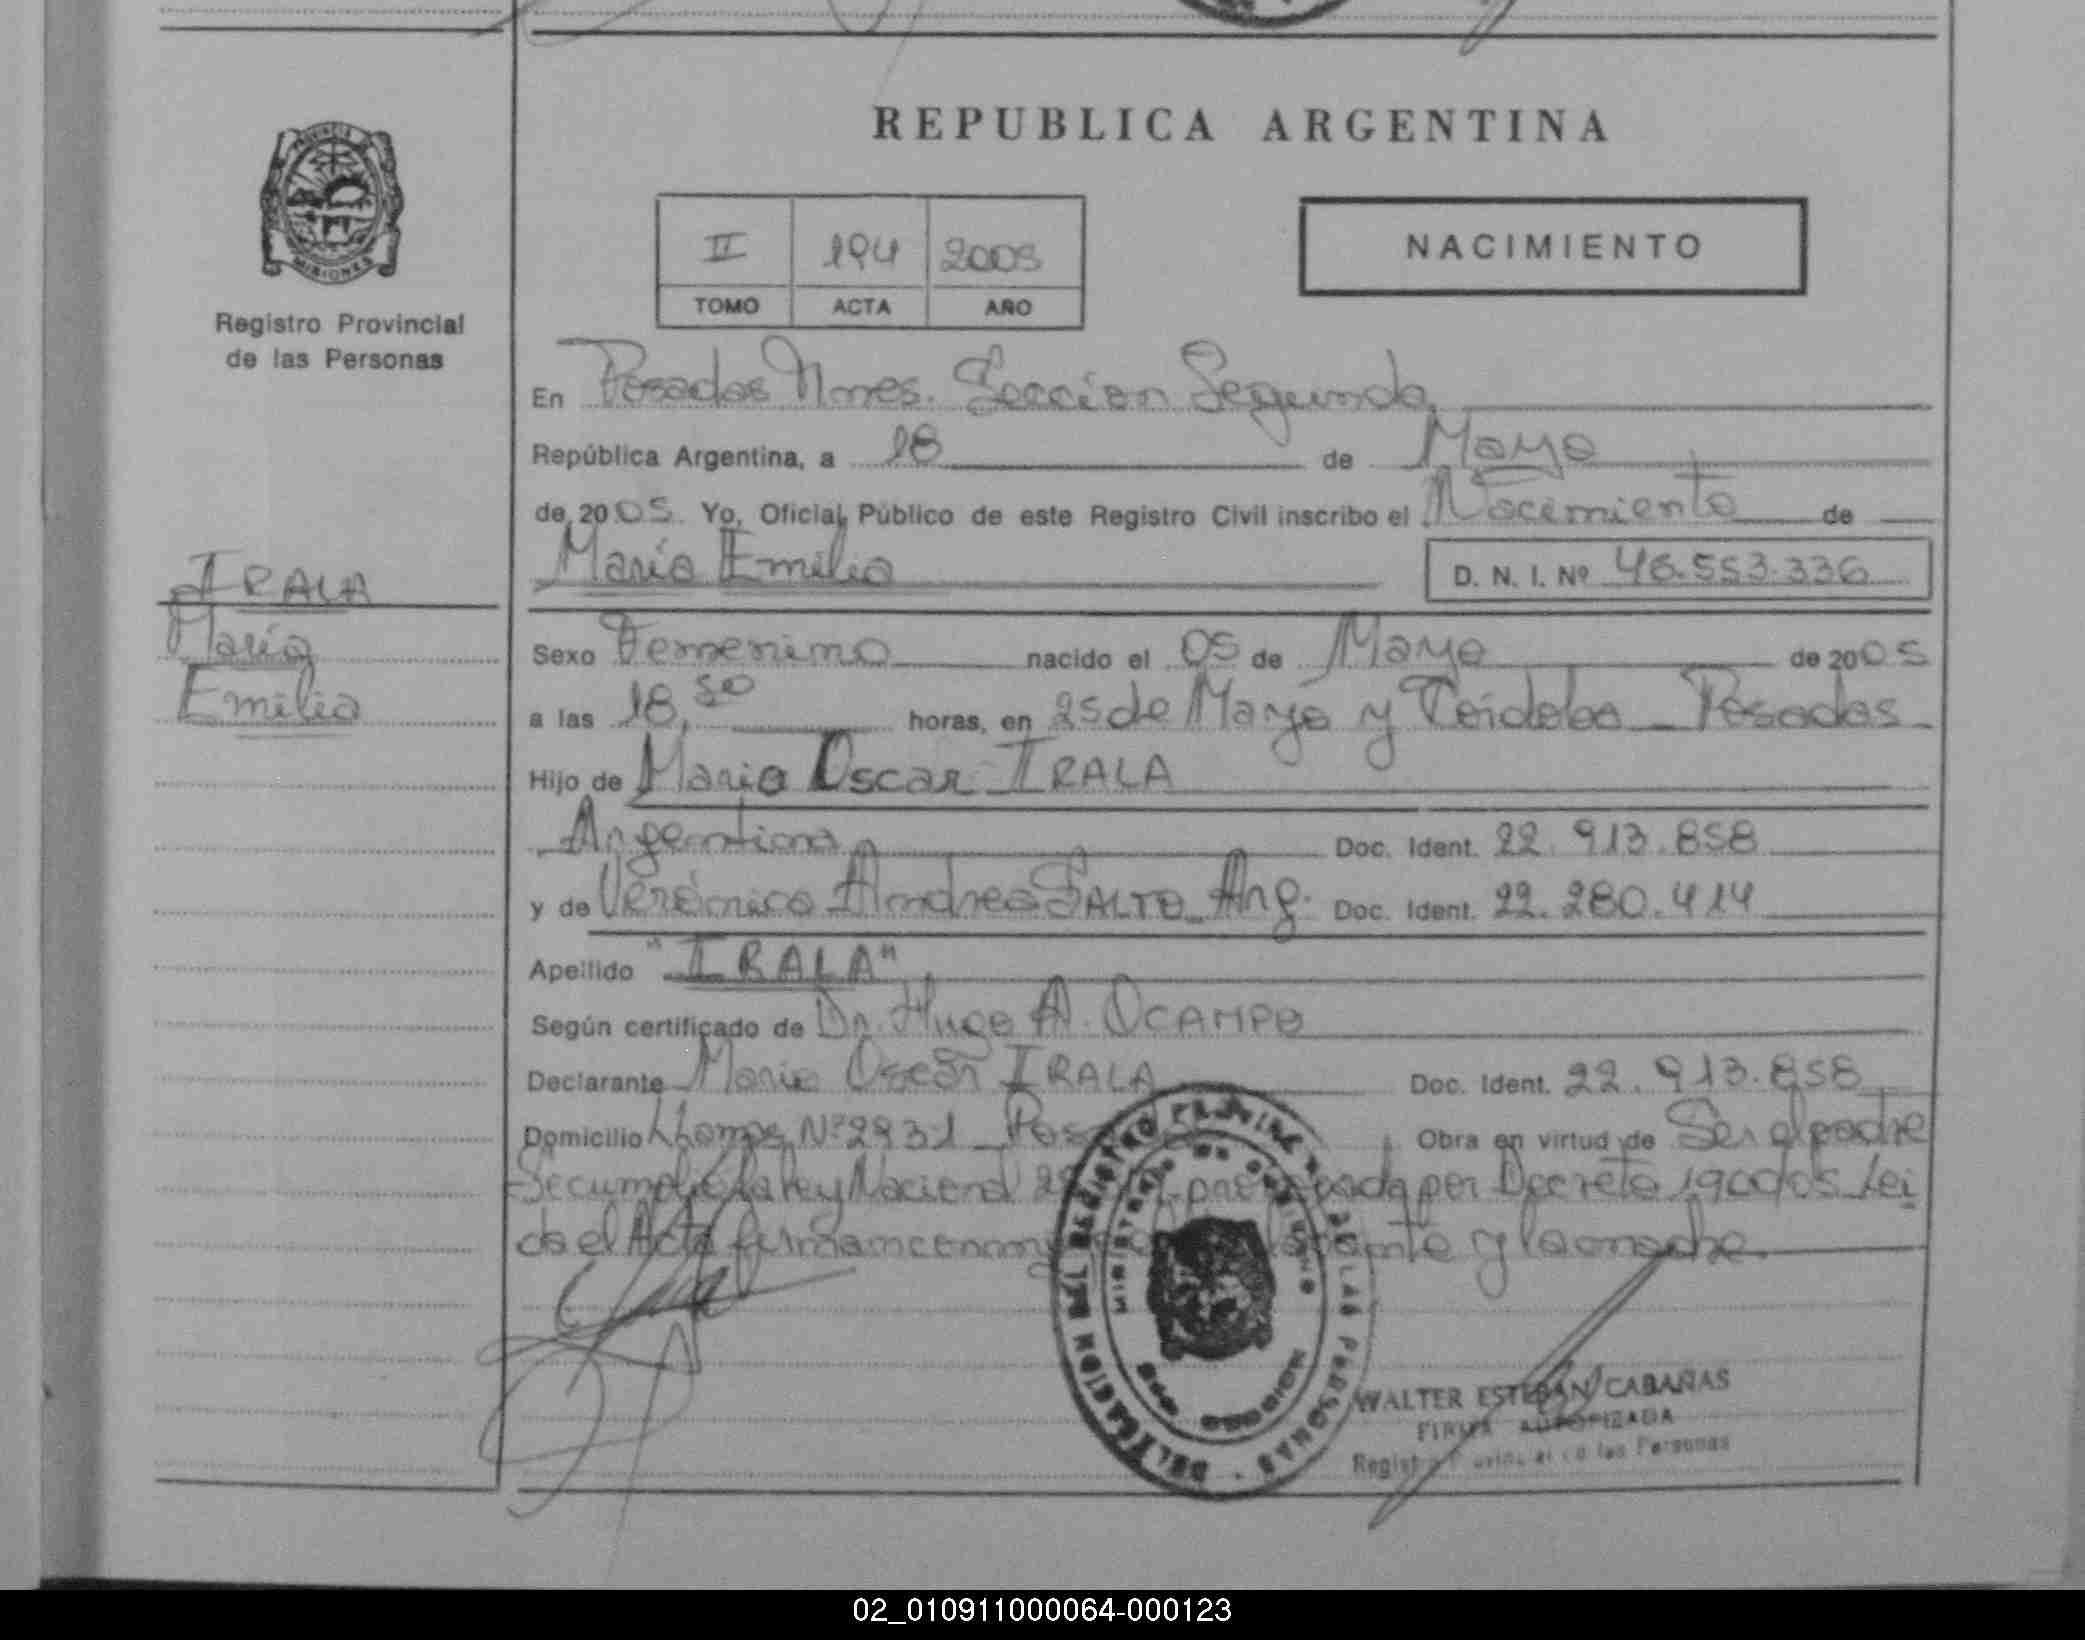 PROVINCIA
MISIONES
Registro Provincial
de las Personas
REPUBLICA ARGENTINA
II 194 2005
TOMO ACTA AÑO
NACIMIENTO
En Posadas Mnes. Sección Segunda
República Argentina, a 18 de Mayo
de 2005. Yo, Oficial Público de este Registro Civil inscribo el Nacimiento de
María Emilia D. N. I. Nº 46.553.336
IRALA
María
Emilia
Sexo Femenino nacido el 05 de Mayo de 2005
a las 18,50 horas, en 25 de Mayo y Córdoba _ Posadas
Hijo de Mario Oscar IRALA
Argentina Doc. Ident. 22.913.858
y de Verónica Andrea SALTO _ Arg. Doc. Ident. 22.280.414
Apellido "IRALA"
Según certificado de Dr. Hugo A. OCAMPO
Declarante Mario Oscar IRALA Doc. Ident. 22.913.858
Domicilio Nº 2931 _ Obra en virtud de Ser el padre
Se cumple la ley Nacional por Decreto 190/05 Lei
da el Acta firman conmigo y la madre.
DELEGACION DEL REGISTRO PROVINC DE LAS PERSONAS
MINISTERIO DE GOBIERNO
WALTER ESTEBAN CABAÑAS
FIRMA AUTORIZADA
Registro Provincial de las Personas
02_010911000064-000123